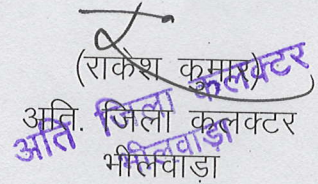 (राकेश कुमार)
अति. जिला कलक्टर
भीलवाड़ा
अति जिला कलक्टर
भीलवाड़ा